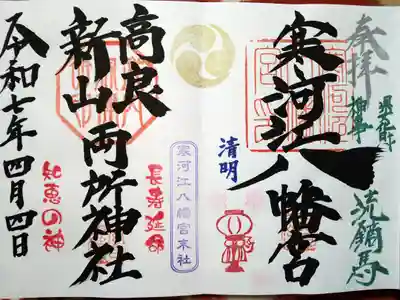 奉拝
流鏑馬
寒河江八幡宮
清明
寒河江八幡宮末社
高良
新山両所神社
長寿延命
知恵の神
令和七年四月四日